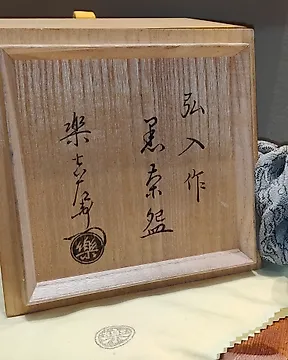 弘入作
黒茶盌
樂吉左衛門
樂